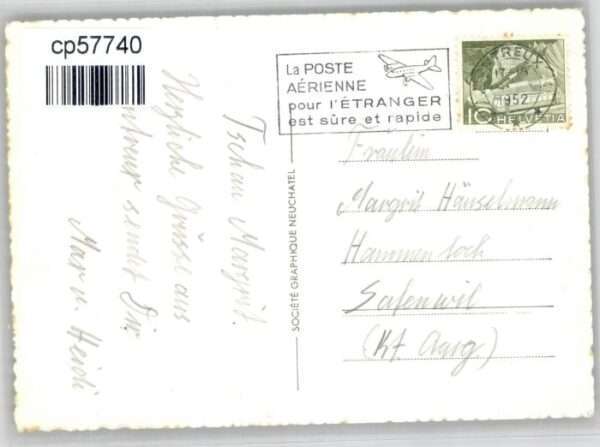 cp57740
La POSTE
AÉRIENNE
pour l'ÉTRANGER
est sûre et rapide
TREUX
1952
10 HELVETIA
Tschau Margrit.
Herzliche Grüsse aus
ntreux sendet Dir
Mar u. Heidi
SOCIÉTÉ GRAPHIQUE NEUCHATEL
Fräulein
Margrit Hänselmann
Hammer
Safenwil
(Kt. Aarg.)